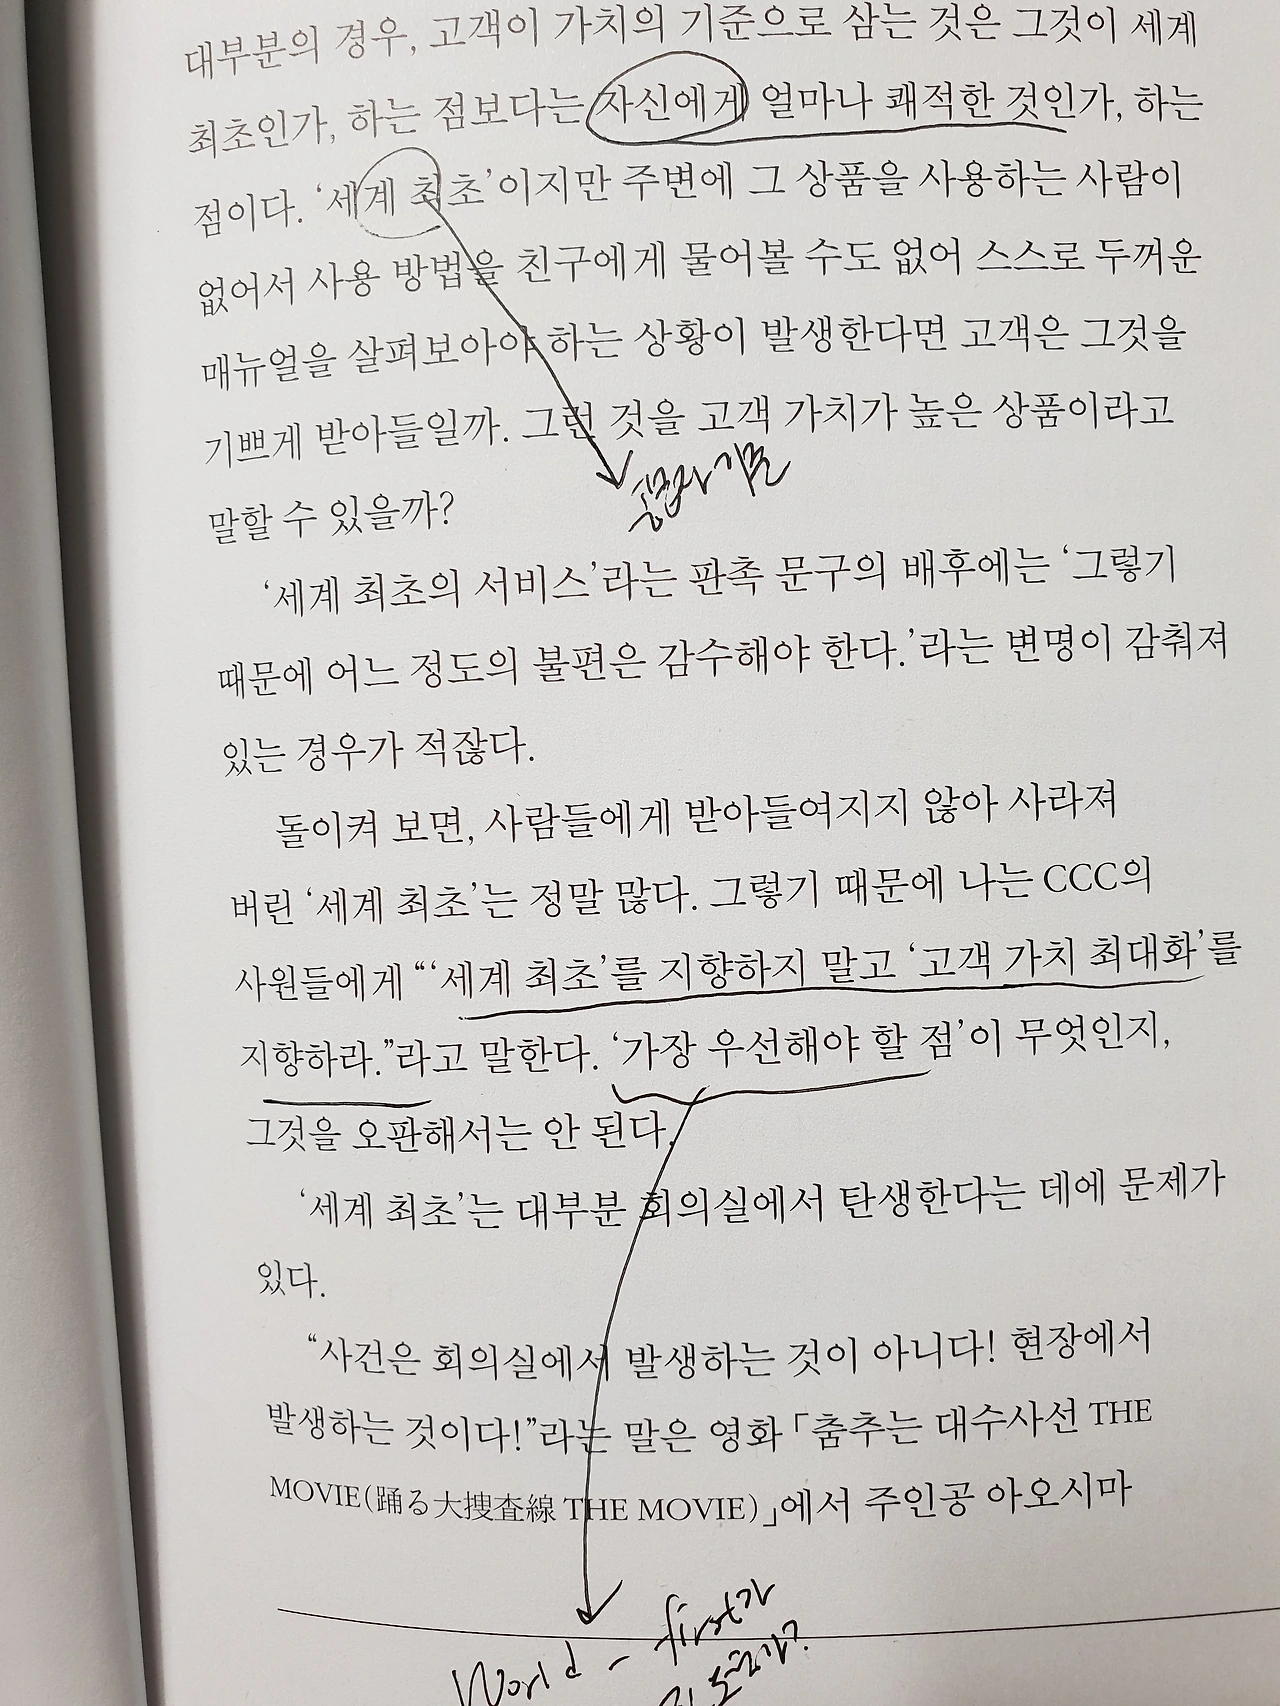 대부분의 경우, 고객이 가치의 기준으로 삼는 것은 그것이 세계
최초인가, 하는 점보다는 자신에게 얼마나 쾌적한 것인가, 하는
점이다. ‘세계 최초’이지만 주변에 그 상품을 사용하는 사람이
없어서 사용 방법을 친구에게 물어볼 수도 없어 스스로 두꺼운
매뉴얼을 살펴보아야 하는 상황이 발생한다면 고객은 그것을
기쁘게 받아들일까. 그런 것을 고객 가치가 높은 상품이라고
기준
말할 수 있을까?
‘세계 최초의 서비스’라는 판촉 문구의 배후에는 ‘그렇기
때문에 어느 정도의 불편은 감수해야 한다.’라는 변명이 감춰져
있는 경우가 적잖다.
돌이켜 보면, 사람들에게 받아들여지지 않아 사라져
버린 ‘세계 최초’는 정말 많다. 그렇기 때문에 나는 CCC의
사원들에게 “‘세계 최초’를 지향하지 말고 ‘고객 가치 최대화’를
지향하라.”라고 말한다. ‘가장 우선해야 할 점’이 무엇인지,
그것을 오판해서는 안 된다.
‘세계 최초’는 대부분 회의실에서 탄생한다는 데에 문제가
있다.
“사건은 회의실에서 발생하는 것이 아니다! 현장에서
발생하는 것이다!”라는 말은 영화 「춤추는 대수사선 THE
MOVIE(踊る大捜査線 THE MOVIE)」에서 주인공 아오시마
World - first가